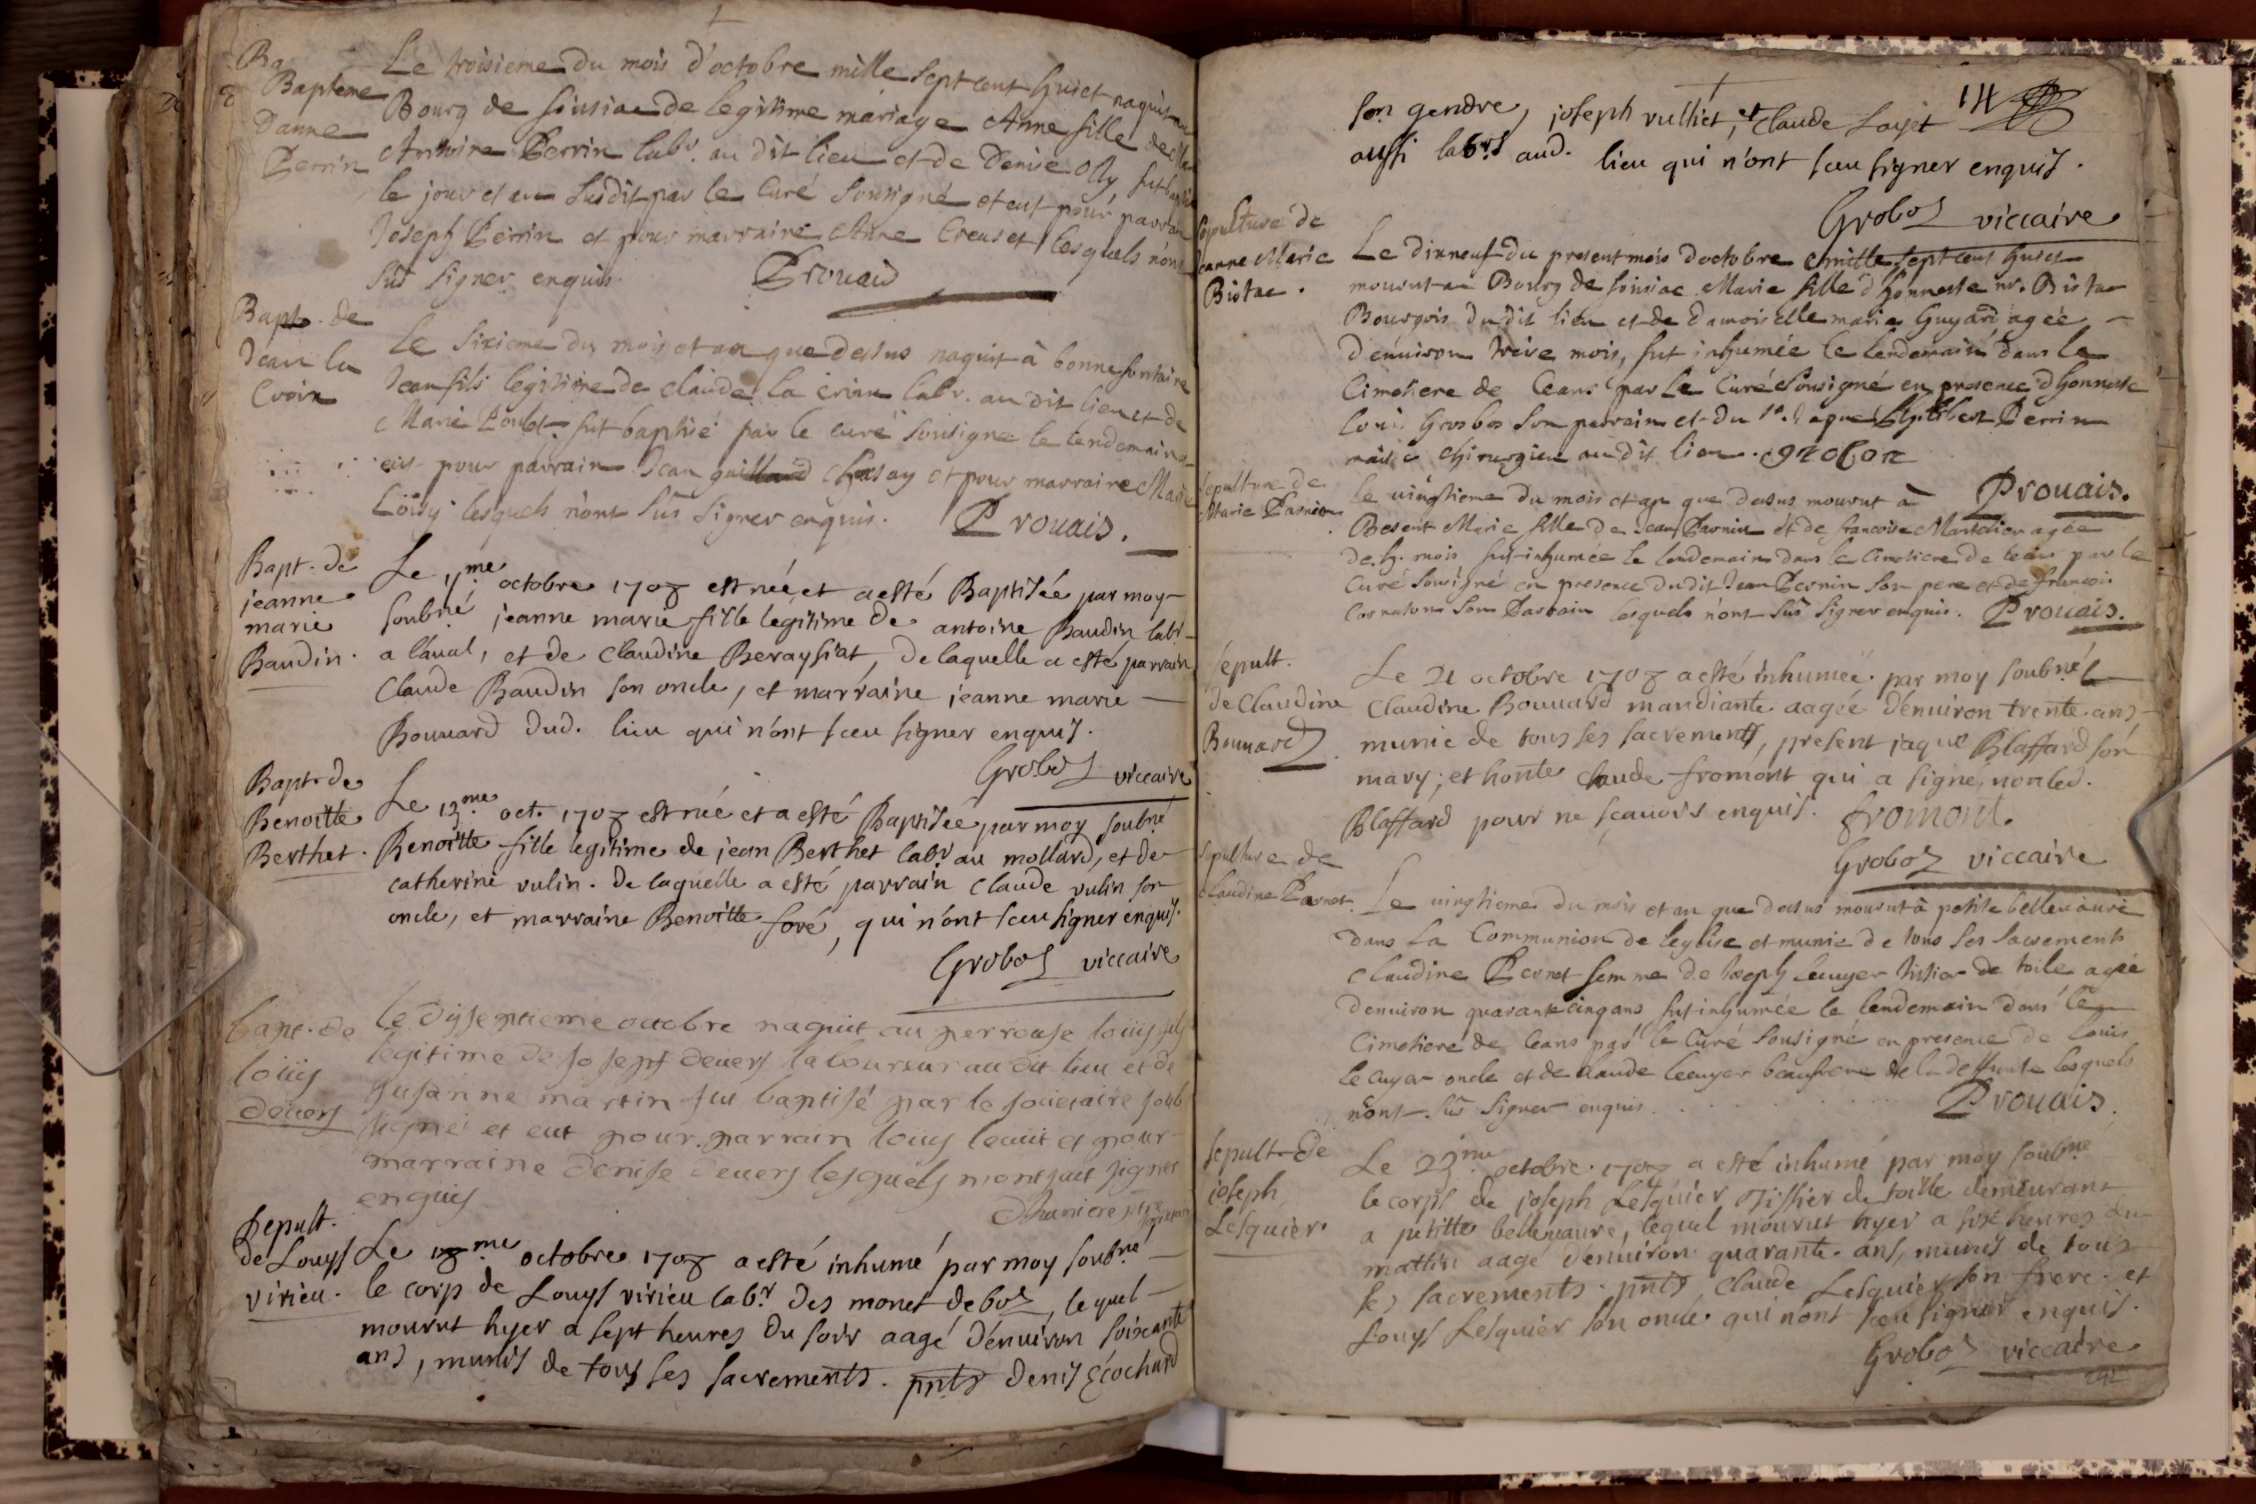 Ba
Bapteme
Danne
Perrin
Le troisieme du mois d'octobre mille sept cent huict naquit au
Bourg de Sinsiac de legitime mariage Anne fille de
Antoine Perrin labr. au dit lieu et de Denise Oly fut
le jour et an susdit par le Curé Sousigné et eut pour parrain
Joseph Perrin et pour marraine Anne Creuset lesquels n'ont
sûs signer enquis. Prouais
Bapt. de
Jean la
Croix
Le sixieme du mois et an que dessus naquit à bonnefontaine
Jean fils legitime de claude la croix labr. au dit lieu et de
Marie Poulet fut baptisé par le curé sousigné le lendemain
eut pour parrain Jean Chasay et pour marraine Marie
Loisy lesquels n'ont sûs signer enquis. Prouais.
Bapt. de
jeanne
marie
Baudin.
Le 11me octobre 1708 est née et a esté Baptisée par moy
soubné jeanne marie fille legitime de antoine Baudin labr
a laval, et de Claudine Beraysiat, de laquelle a esté parrain
Claude Baudin son oncle, et marraine jeanne marie
Bouuard dud. lieu qui n'ont sceu signer enquis.
Groboz viccaire
Bapt. de
Benoitte
Berthet.
Le 13me oct. 1708 est née et a esté Baptisée par moy soubné
Benoitte fille legitime de jean Berthet labr au mollard, et de
catherine vulin. de laquelle a esté parrain Claude vulin son
oncle, et marraine Benoitte foré, qui n'ont sceu signer enquis.
Groboz viccaire
bapt. de
loüys
deuers
le dyseptieme octobre naquit au perrouse loüys fils
legitime de joseph deuers laboureur au dit lieu et de
susanne martin fut baptisé par le societaire soub
signé et eut pour parrain loüys et pour
marraine denise deuers lesquels n'ont sceu signer
enquis
Sepult.
de Louys
virieu.
Le 18me octobre 1708 a esté inhumé par moy soubné
le corps de Louys virieu labr des monet deboz, lequel
mourut hyer a sept heures du soir aagé d'énuiron soixante
ans, munis de tous ses sacrements. pnts Denis Ecochard
14
son gendre, joseph vulliet, et Claude Loyet
aussi labrs aud. lieu qui n'ont sceu signer enquis.
Groboz viccaire
Sepulture de
Jeanne Marie
Bistac.
Le dixneuf du present mois d'octobre mille sept cens huict
mourut au Bourg de Sinsiac Marie fille d'honneste Bistac
Bourgois du dit lieu et de damoiselle marie Guyard agée
d'enuiron treize mois, fut inhumée le lendemain dans le
Cimetiere de Ceans par le Curé Sousigné en presence d'honneste
Louis Grosbos son parrain et du Sr. Philibert Perrin
maistre Chirurgien au dit lieu. grobon
Prouais.
Sepulture de
Marie Pernin
le uingtieme du mois et an que dessus mourut à
Besent Marie fille de Jean Pernin et de francoise agée
de mois fut inhumée le lendemain dans le Cimetiere de ceans par le
Curé Sousigné en presence dudit Jean Pernin son pere et de francois
Cornaton son Parrain lesquels n'ont sûs signer enquis. Prouais.
Sepult.
de Claudine
Bouuard
Le 21 octobre 1708 a esté inhumée par moy soubné
Claudine Bouuard mandiante aagée d'énuiron trente ans
munie de tous ses sacrements, present jaque Blaffard son
mary, et honte Claude fromont qui a signe, non led.
Blaffard pour ne sçauoir enquis. fromont.
Groboz viccaire
Sepulture de
Claudine Pernet.
Le uingtieme du mois et an que dessus mourut à petite belleuaure
dans la Communion de leglise et munie de tous ses sacrements
Claudine Pernet femme de Joseph Lecuyer tissier de toile agée
denuiron quarante cinq ans fut inhumée le lendemain dans le
Cimetiere de Ceans par le Curé Sousigné en presence de Louis
Lecuyer oncle et de claude lecuyer beaufrere de la deffunte lesquels
n'ont sûs signer enquis. Prouais
Sepult. de
joseph
Lesquier.
Le 23me octobre 1708 a esté inhumé par moy soubné
le corps de joseph Lesquier tissier de toille demeurant
a petitte belleuaure, lequel mourut hyer a six heures du
mattin aagé d'enuiron quarante ans, munis de tous
ses sacrements. pnts Claude Lesquier son frere et
Louys Lesquier son oncle qui n'ont sceu signer enquis.
Groboz viccaire